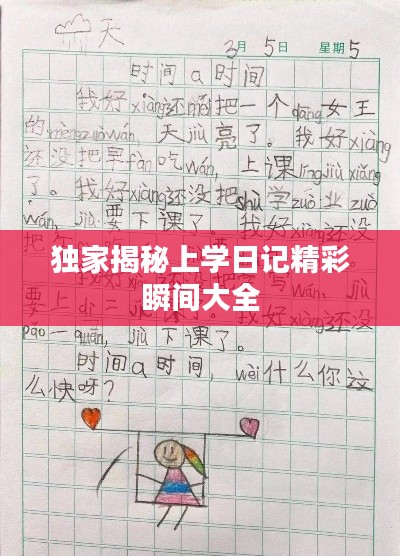 天
3月5日 星期5
时间a时间
我好xiàng还méi把一个dāng女王
的mèngzuòwán，天jiù亮了。我好xiàng
还没把早fàn吃wán，上课língjiùxiǎng
了。我好xiàng还没把shù学zuò业zuò
wán，jiù要下课了。我好xiàng还没
独家揭秘上学日记精彩
瞬间大全
pǎo一quān，jiù下课了。
时间a时间，wèi什么你这
么快呀？